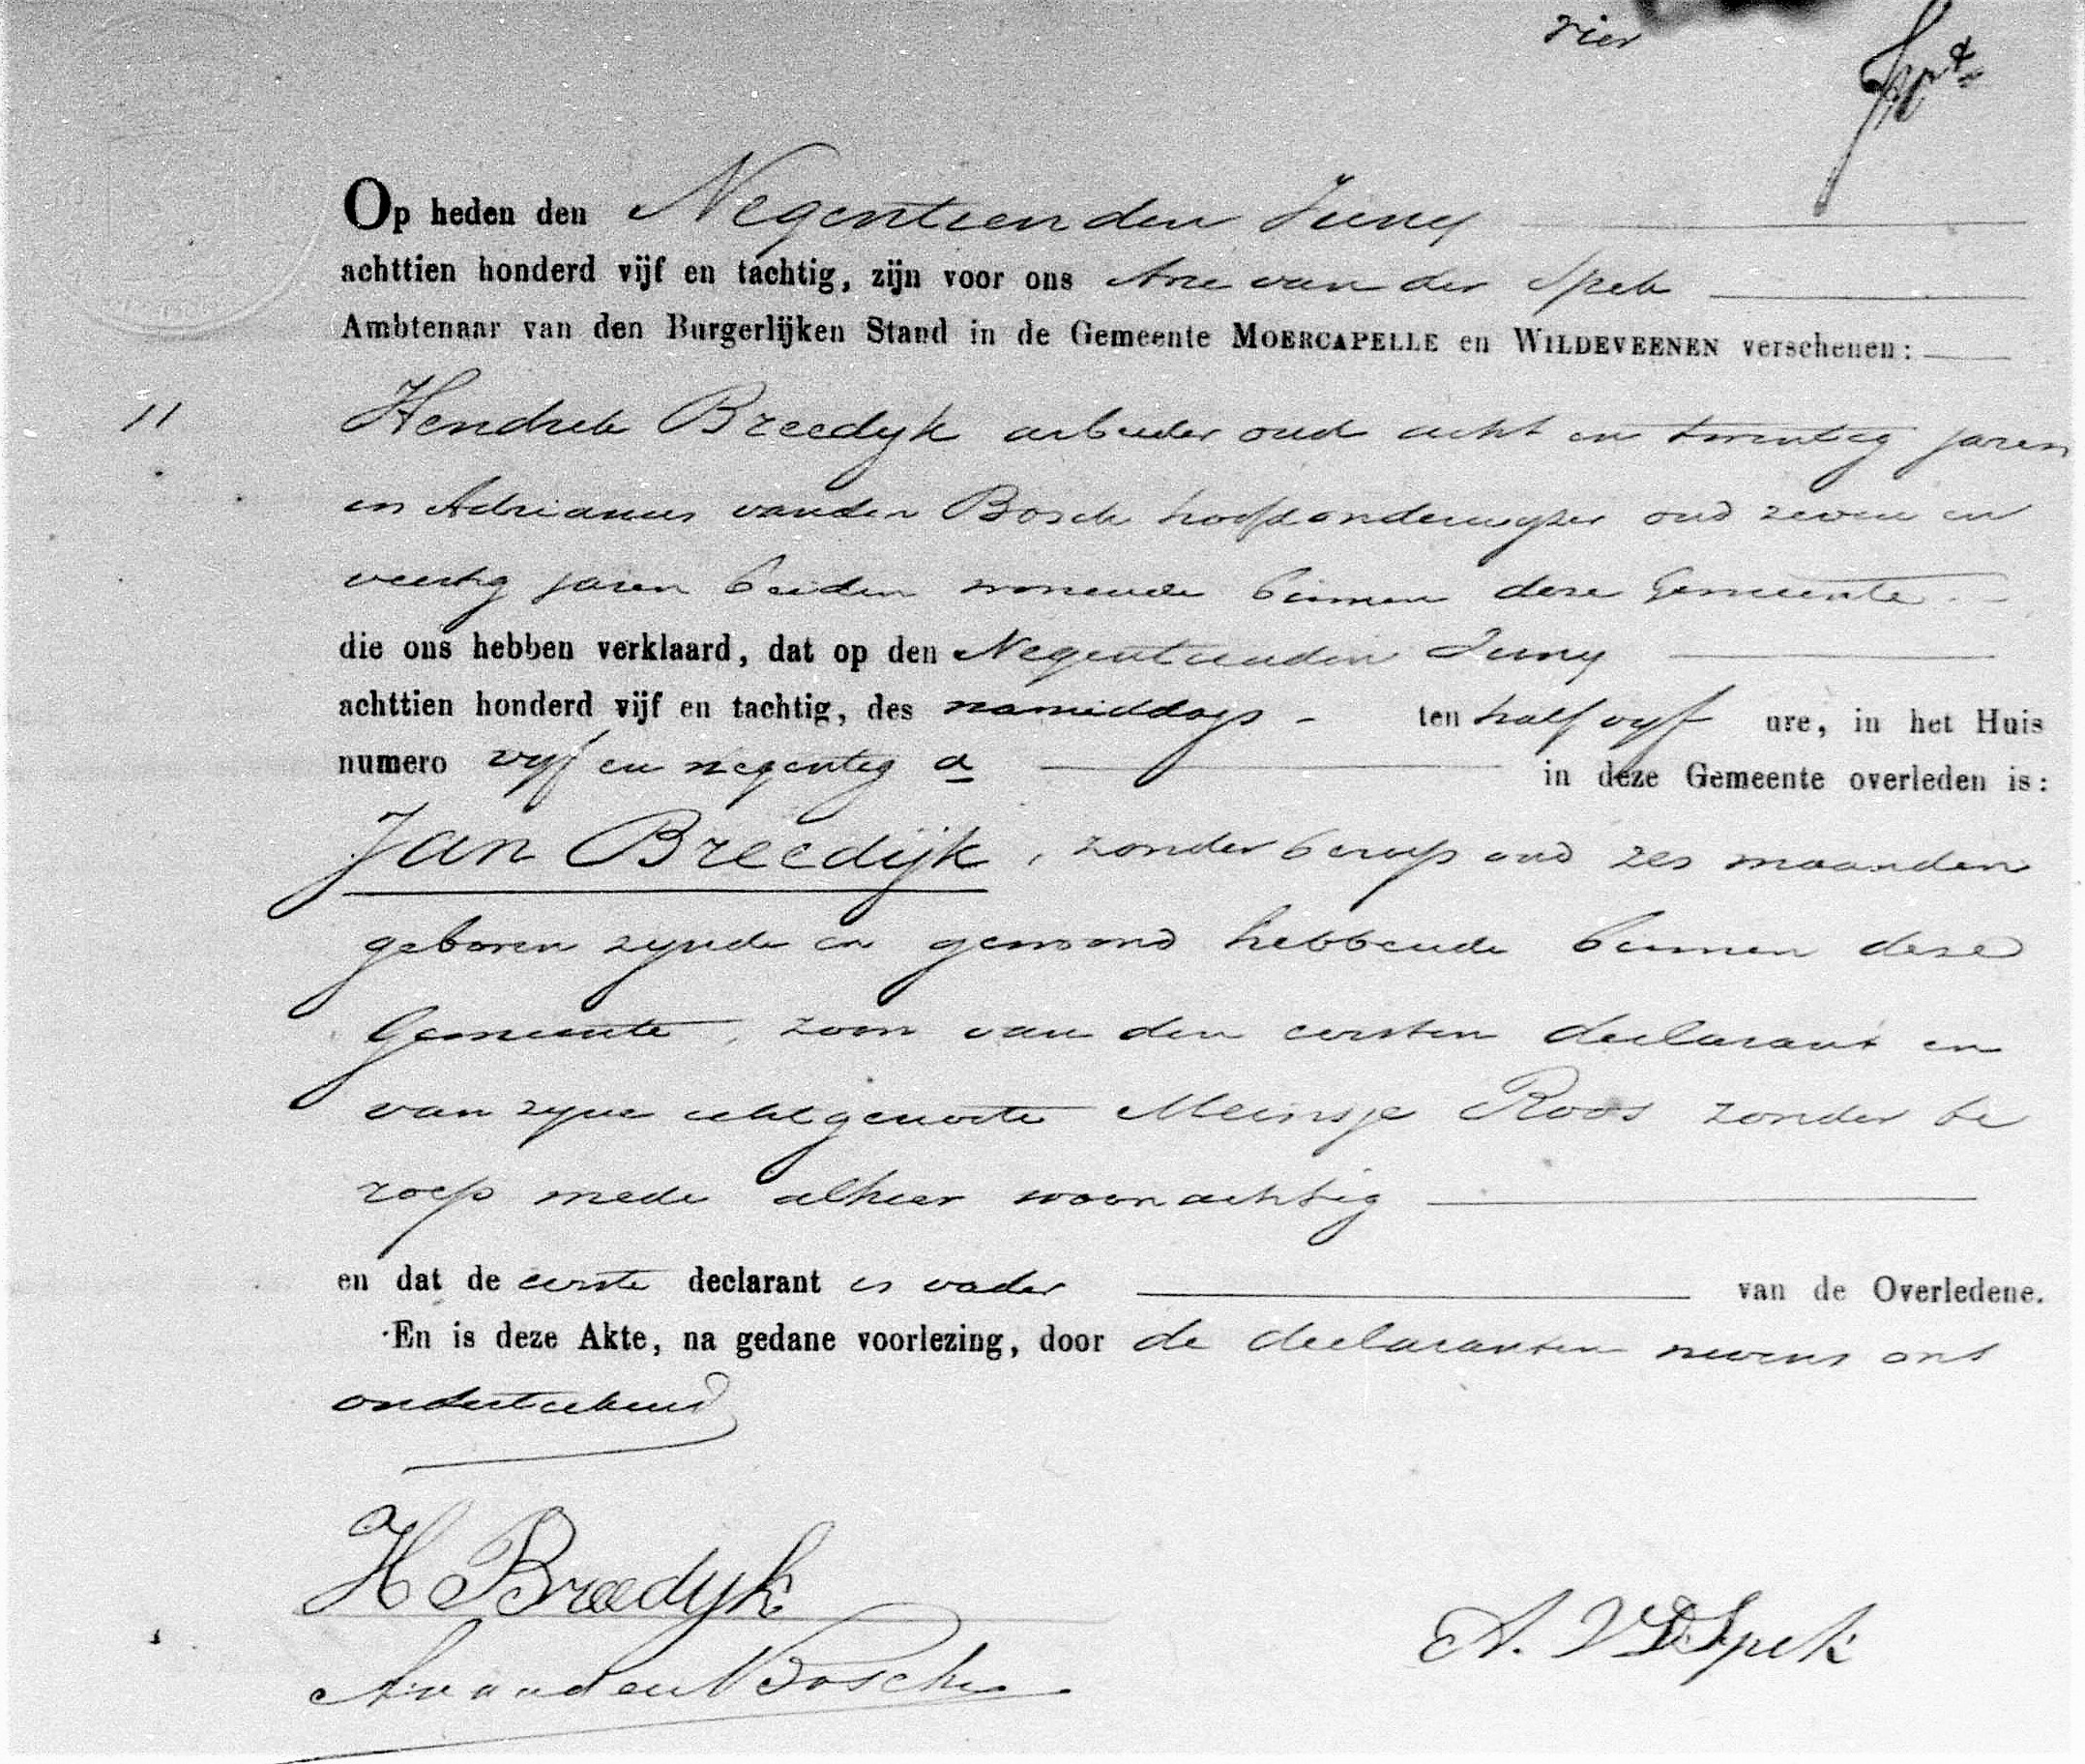 vier
Op heden den Negentienden Juny
achttien honderd vijf en tachtig, zijn voor ons Arie van der Spek
Ambtenaar van den Burgerlijken Stand in de Gemeente MOERCAPELLE en WILDEVEENEN verschenen:
11
Hendrik Breedyk arbeider oud acht en twintig jaren
en Adrianus van den Bosch hoofdonderwyzer oud zeven en
veertig jaren beiden wonende binnen deze Gemeente
die ons hebben verklaard, dat op den Negentienden Juny
achttien honderd vijf en tachtig, des namiddags ten half vyf ure, in het Huis
numero vyf en negentig a in deze Gemeente overleden is:
Jan Breedijk, zonder beroep oud zes maanden
geboren zynde en gewoond hebbende binnen deze
Gemeente, zoon van den eersten declarant en
van zyne echtgenoote Meinsje Roos zonder be
roep mede alhier woonachtig
en dat de eerste declarant is vader van de Overledene.
En is deze Akte, na gedane voorlezing, door de declaranten nevens ons
onderteekend
H Breedyk
A. VD Spek
A van den Bosch